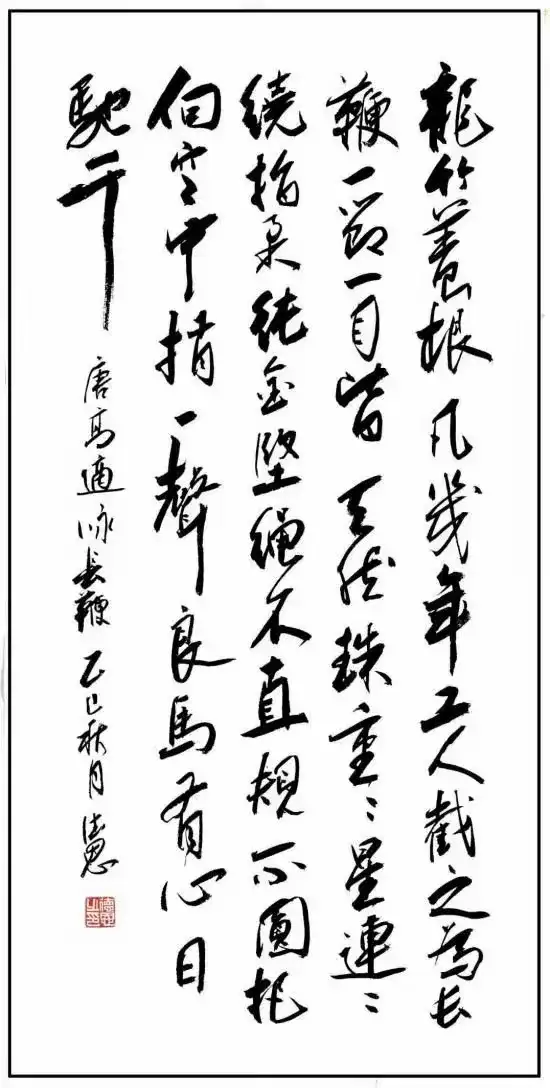 龍竹養根凡幾年工人截之為長
鞭一節一目皆天然珠重〻星連〻
繞指柔純金堅繩不直規不圓把
向空中捎一聲良馬有心日
馳千
唐高適咏長鞭乙巳秋月